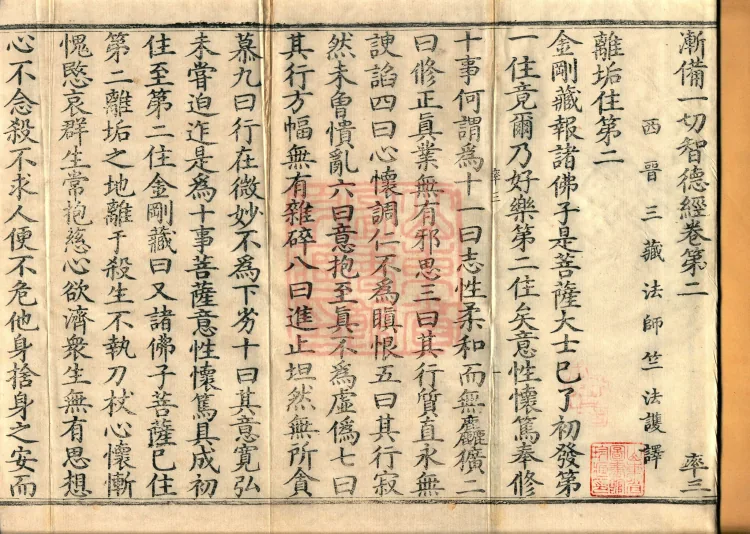 漸備一切智德經卷第二 率三
西晉三藏法師竺法護譯
離垢住第二
金剛藏報諸佛子是菩薩大士已了初發第
一住竟爾乃好樂第二住矣意性懷篤奉修
率三
十事何謂爲十一曰志性柔和而無麤獷二
曰修正真業無有邪思三曰其行質直永無
諛諂四曰心懷調仁不爲瞋恨五曰其行寂
然未曾憒亂六曰意抱至真不爲虛僞七曰
其行方幅無有雜碎八曰進止坦然無所貪
慕九曰行在微妙不爲下劣十曰其意寬弘
未嘗迫迮是爲十事菩薩意性懷篤具成初
住至第二住金剛藏曰又諸佛子菩薩已住
第二離垢之地離于殺生不執刀杖心懷慚
愧愍哀群生常抱慈心欲濟衆生無有思想
心不念殺不求人便不危他身捨身之安而